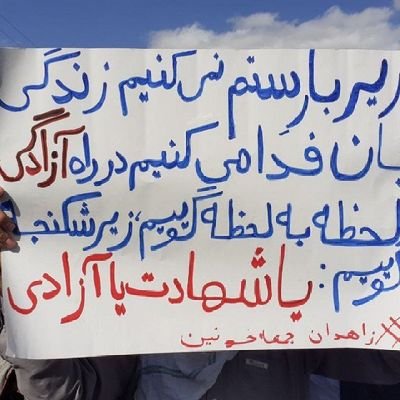 زیر بار ستم نمی کنیم زندگی
جان فدا می کنیم در راه آزادگی
لحظه به لحظه گوییم، زیر شکنجه
گوییم: یا شهادت یا آزادی
# زاهدان جمعه خونین